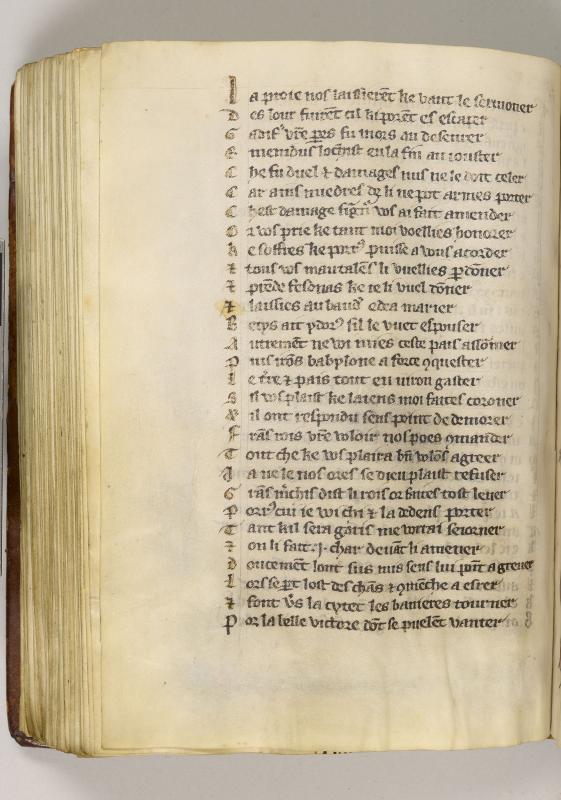 L a proie nos laissierēt ke vaut le sermoner
D es lour furēt cil ki porēt es escaper
C adifᵉ vr̄e pers fu mors au deseurer
E menidus locist en la fin au iouster
C he fu duel ⁊ damages nus ne le doit celer
C ar ains mieldres de li ne pot armes porter
C hest damage vos ai fait amender
O r vos prie ke tant moi voellies honorer
K e soffres ke porꝰ puisse a vous acorder
⁊ tous vos mautalēs li vuellies p̄doner
⁊ prēde fesonas ke ie li vuel doner
⁊ laissies au baudᵉ edea marier
B etys ait ydorꝰ sil le vuet espouser
A utremēt ne voi mies ceste pais assōmer
P uis irōs babylone a force ꝯquester
L e tr̄e ⁊ pais tout en uiron gaster
S il vos plaist ke laiens moi faites coroner
⁊ il ont respondu sens point de demorer
F rās rois vr̄e voloir nos poes ꝯmander
T out che ke vos plaira bn̄ volōs agreer
J a ne le nos ores se dieu plaist refuser
G rās m̄chis dist li rois or faites tost leuer
P orrꝰ cui ie voi chi ⁊ la dedens porter
T ant kil sera garis me vorrai seiorner
⁊ on li fait .i. char deuāt li amener
D oucemēt lont sus mis sens lui poīt agreuer
L ors se pt lost des chās ⁊ ꝯmēche a esrer
⁊ font v̄s la cytet les banieres tourner
P or la belle victore dōt se puelent vanter